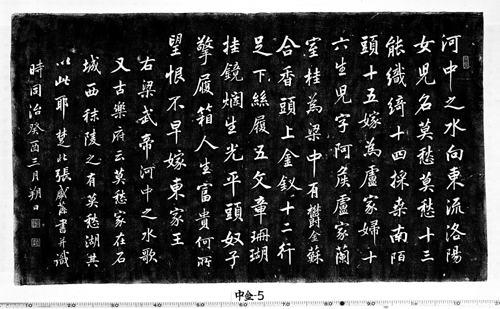 河中之水向東流洛陽
女兒名莫愁莫愁十三
能織綺十四採桑南陌
頭十五嫁為盧家婦十
六生兒字阿侯盧家蘭
室桂為梁中有鬱金蘇
合香頭上金釵十二行
足下絲履五文章珊瑚
挂鏡爛生光平頭奴子
擎履箱人生富貴何所
望恨不早嫁東家王
右梁武帝河中之水歌
又古樂府云莫愁家在石
城西秣陵之有莫愁湖其
以此耶 楚北張盛藻書并識
時同治癸酉三月朔日
中金-5